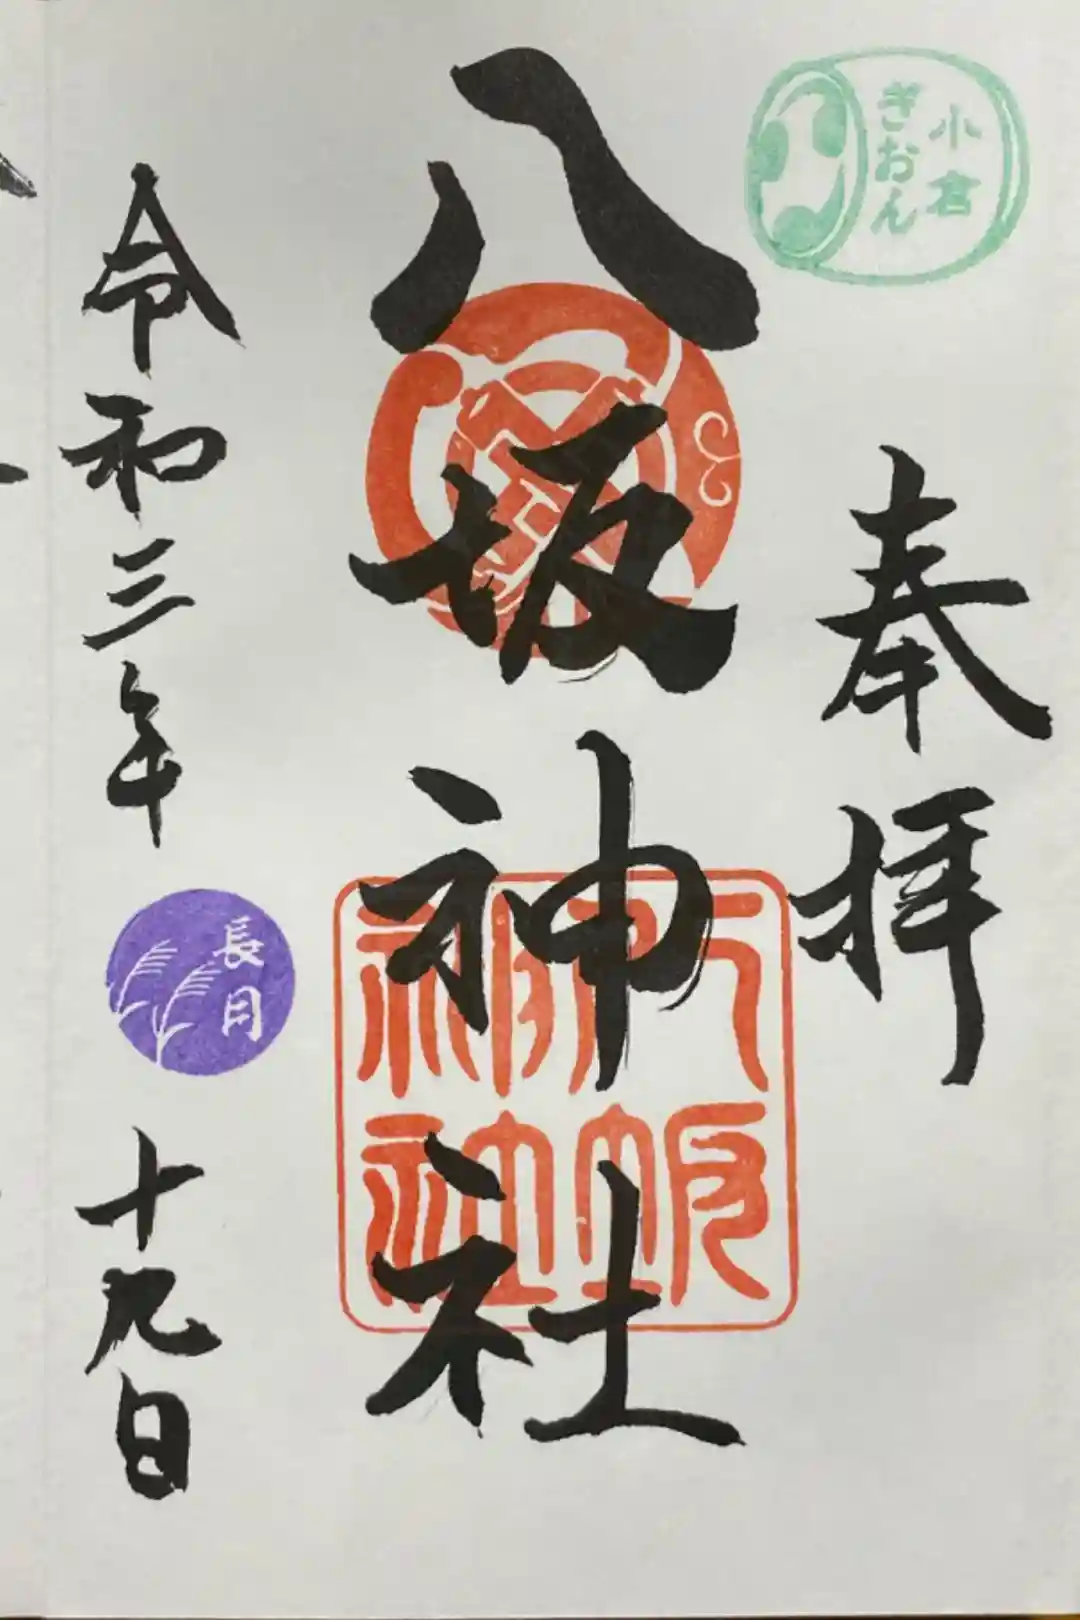 小倉
ぎおん
奉拝
八坂神社
八坂
神社
令和三年
長月
十九日